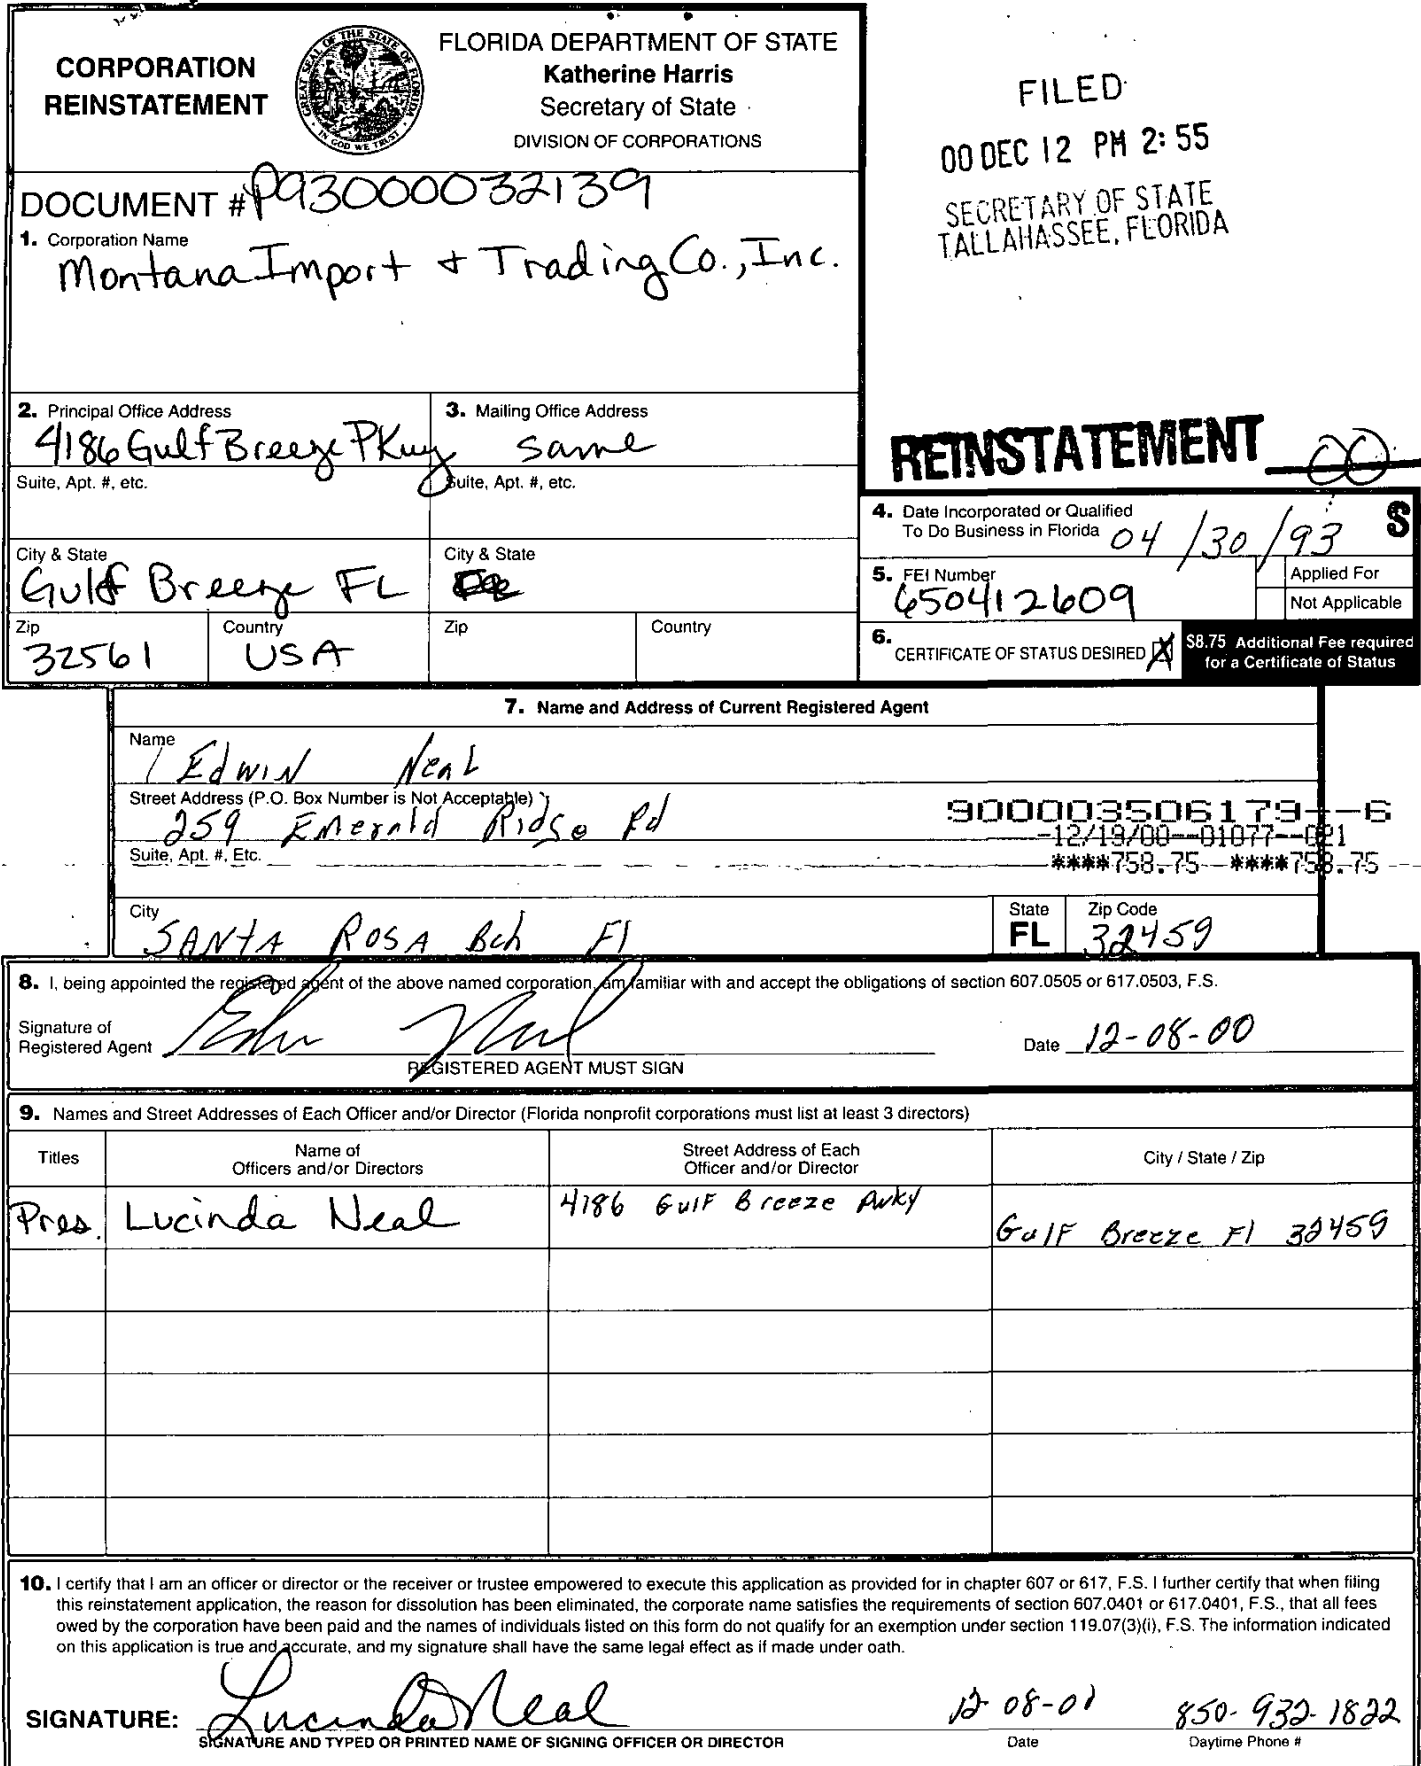 CORPORATION
REINSTATEMENT
GREAT SEAL OF THE STATE OF FLORIDA
IN GOD WE TRUST
FLORIDA DEPARTMENT OF STATE
Katherine Harris
Secretary of State
DIVISION OF CORPORATIONS
FILED
00 DEC 12 PM 2:55
SECRETARY OF STATE
TALLAHASSEE, FLORIDA
DOCUMENT # P93000032139
1. Corporation Name
Montana Import + Trading Co., Inc.
2. Principal Office Address
4186 Gulf Breeze PKwy
3. Mailing Office Address
same
Suite, Apt. #, etc.
Suite, Apt. #, etc.
City & State
Gulf Breeze FL
City & State
Zip
32561
Country
USA
Zip
Country
REINSTATEMENT 00
4. Date Incorporated or Qualified
To Do Business in Florida 04/30/93
S
5. FEI Number
650412609
Applied For
Not Applicable
6. CERTIFICATE OF STATUS DESIRED X
$8.75 Additional Fee required
for a Certificate of Status
7. Name and Address of Current Registered Agent
Name
Edwin Neal
Street Address (P.O. Box Number is Not Acceptable)
259 Emerald Ridge Rd
900003506179--6
-12/19/00--01077--021
****758.75 ****758.75
Suite, Apt. #, Etc.
City
SANTA ROSA Bch Fl
State
FL
Zip Code
32459
8. I, being appointed the registered agent of the above named corporation, am familiar with and accept the obligations of section 607.0505 or 617.0503, F.S.
Signature of
Registered Agent Edwin Neal
Date 12-08-00
REGISTERED AGENT MUST SIGN
9. Names and Street Addresses of Each Officer and/or Director (Florida nonprofit corporations must list at least 3 directors)
Titles
Name of
Officers and/or Directors
Street Address of Each
Officer and/or Director
City / State / Zip
Pres. Lucinda Neal 4186 Gulf Breeze Pwky Gulf Breeze Fl 32459
10. I certify that I am an officer or director or the receiver or trustee empowered to execute this application as provided for in chapter 607 or 617, F.S. I further certify that when filing
this reinstatement application, the reason for dissolution has been eliminated, the corporate name satisfies the requirements of section 607.0401 or 617.0401, F.S., that all fees
owed by the corporation have been paid and the names of individuals listed on this form do not qualify for an exemption under section 119.07(3)(i), F.S. The information indicated
on this application is true and accurate, and my signature shall have the same legal effect as if made under oath.
SIGNATURE: Lucinda Neal 12-08-01 850-932-1822
SIGNATURE AND TYPED OR PRINTED NAME OF SIGNING OFFICER OR DIRECTOR
Date
Daytime Phone #